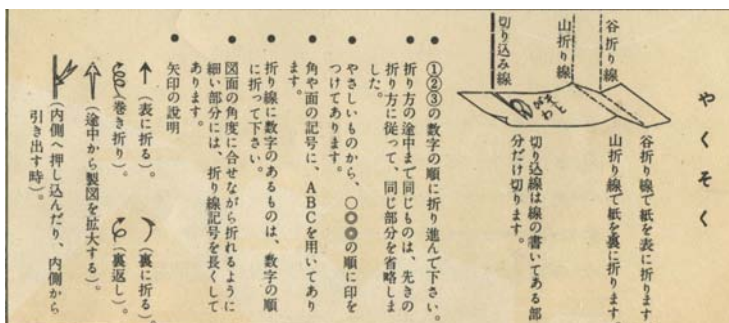 やくそく
谷折り線で紙を表に折ります
山折り線で紙を裏に折ります
切り込線は線の書いてある部
分だけ切ります。
谷折り線
山折り線
切り込み線
● ①②③の数字の順に折り進んで下さい。
● 折り方の途中まで同じものは、先きの
折り方に従って、同じ部分を省略しま
した。
● やさしいものから、○◎◉の順に印を
つけてあります。
● 角や面の記号に、ABCを用いてあり
ます。
● 折り線に数字のあるものは、数字の順
に折って下さい。
● 図面の角度に合せながら折れるように
細い部分には、折り線記号を長くして
あります。
● 矢印の説明
(表に折る)。
(裏に折る)。
(巻き折り)。
(裏返し)。
(途中から製図を拡大する)。
(内側へ押し込んだり、内側から
引き出す時)。